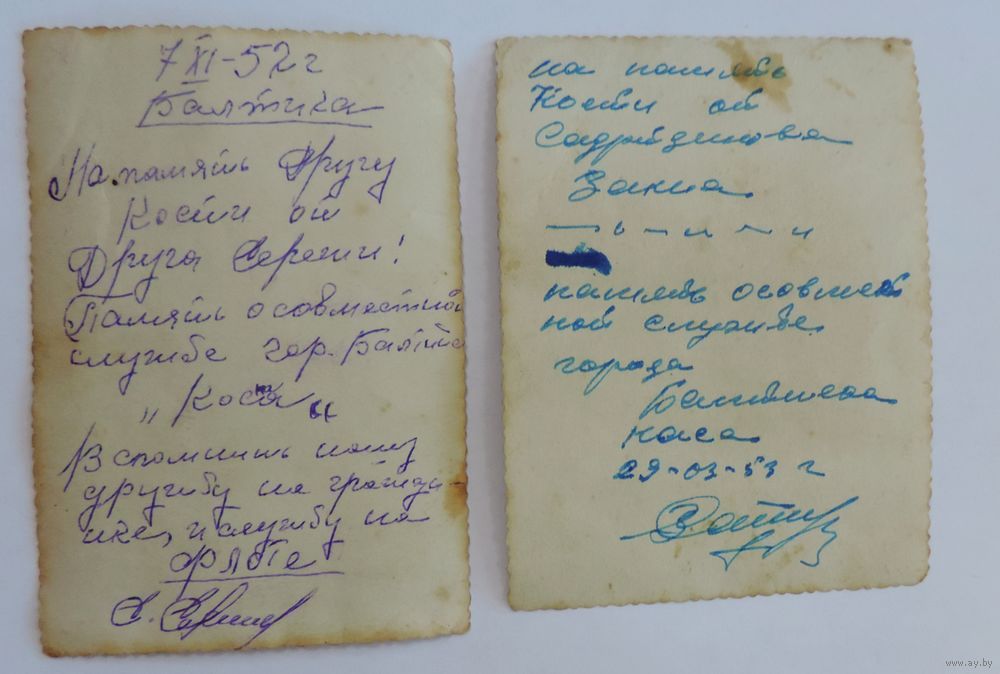 7 XI-52 г
Балтика
На память Другу
Кости от
Друга Сережи!
Память о совместной
службе гор. Балтийс
„ Коса "
Вспомнить нашу
дружбу на гражда-
нке, и службу на
флоте
на память
Кости от
Садрйдинова
Закиа
память о совмест
ной службе
города
Балтийска
каса
29-03-53 г
www.ay.by